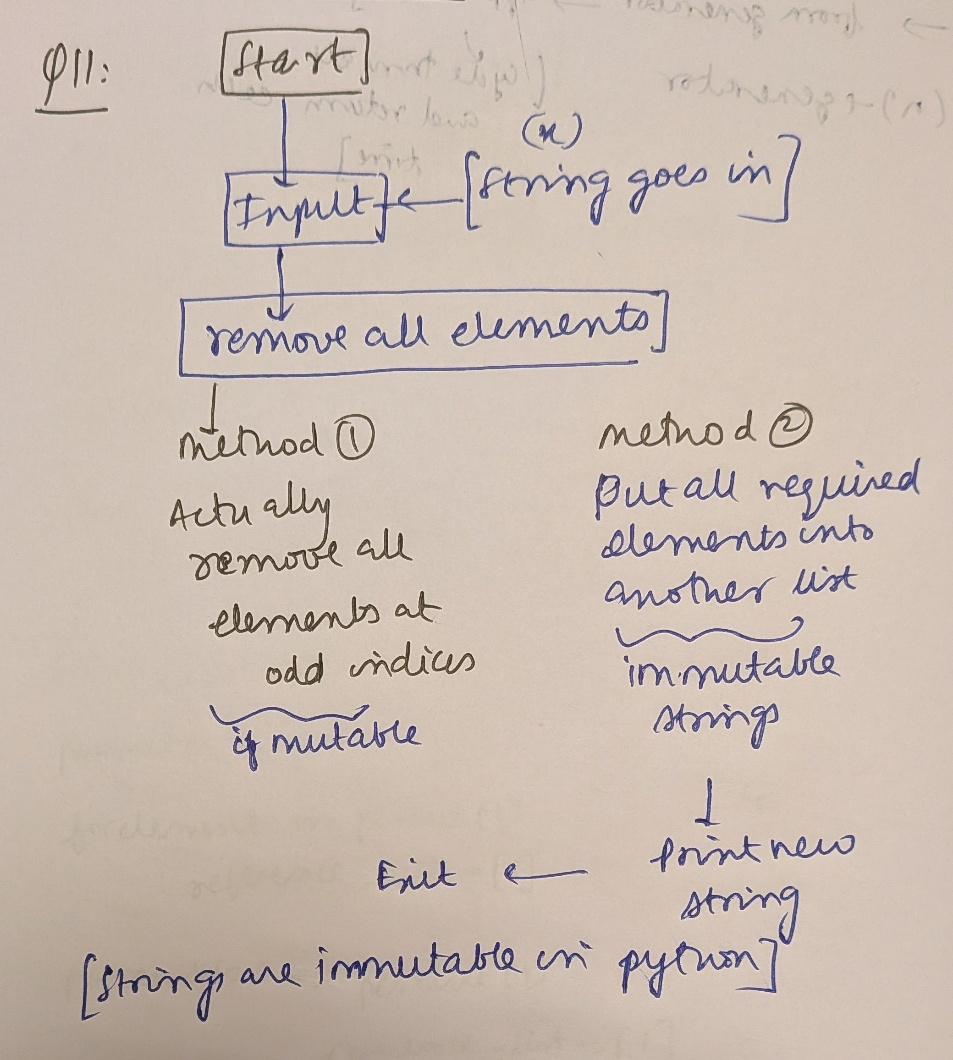 Q11:
Start
(x)
Input ← [String goes in]
remove all elements
method ①
Actually
remove all
elements at
odd indices
if mutable
method ②
Put all required
elements into
another list
immutable
strings
print new
string
Exit ←
[Strings are immutable in python]